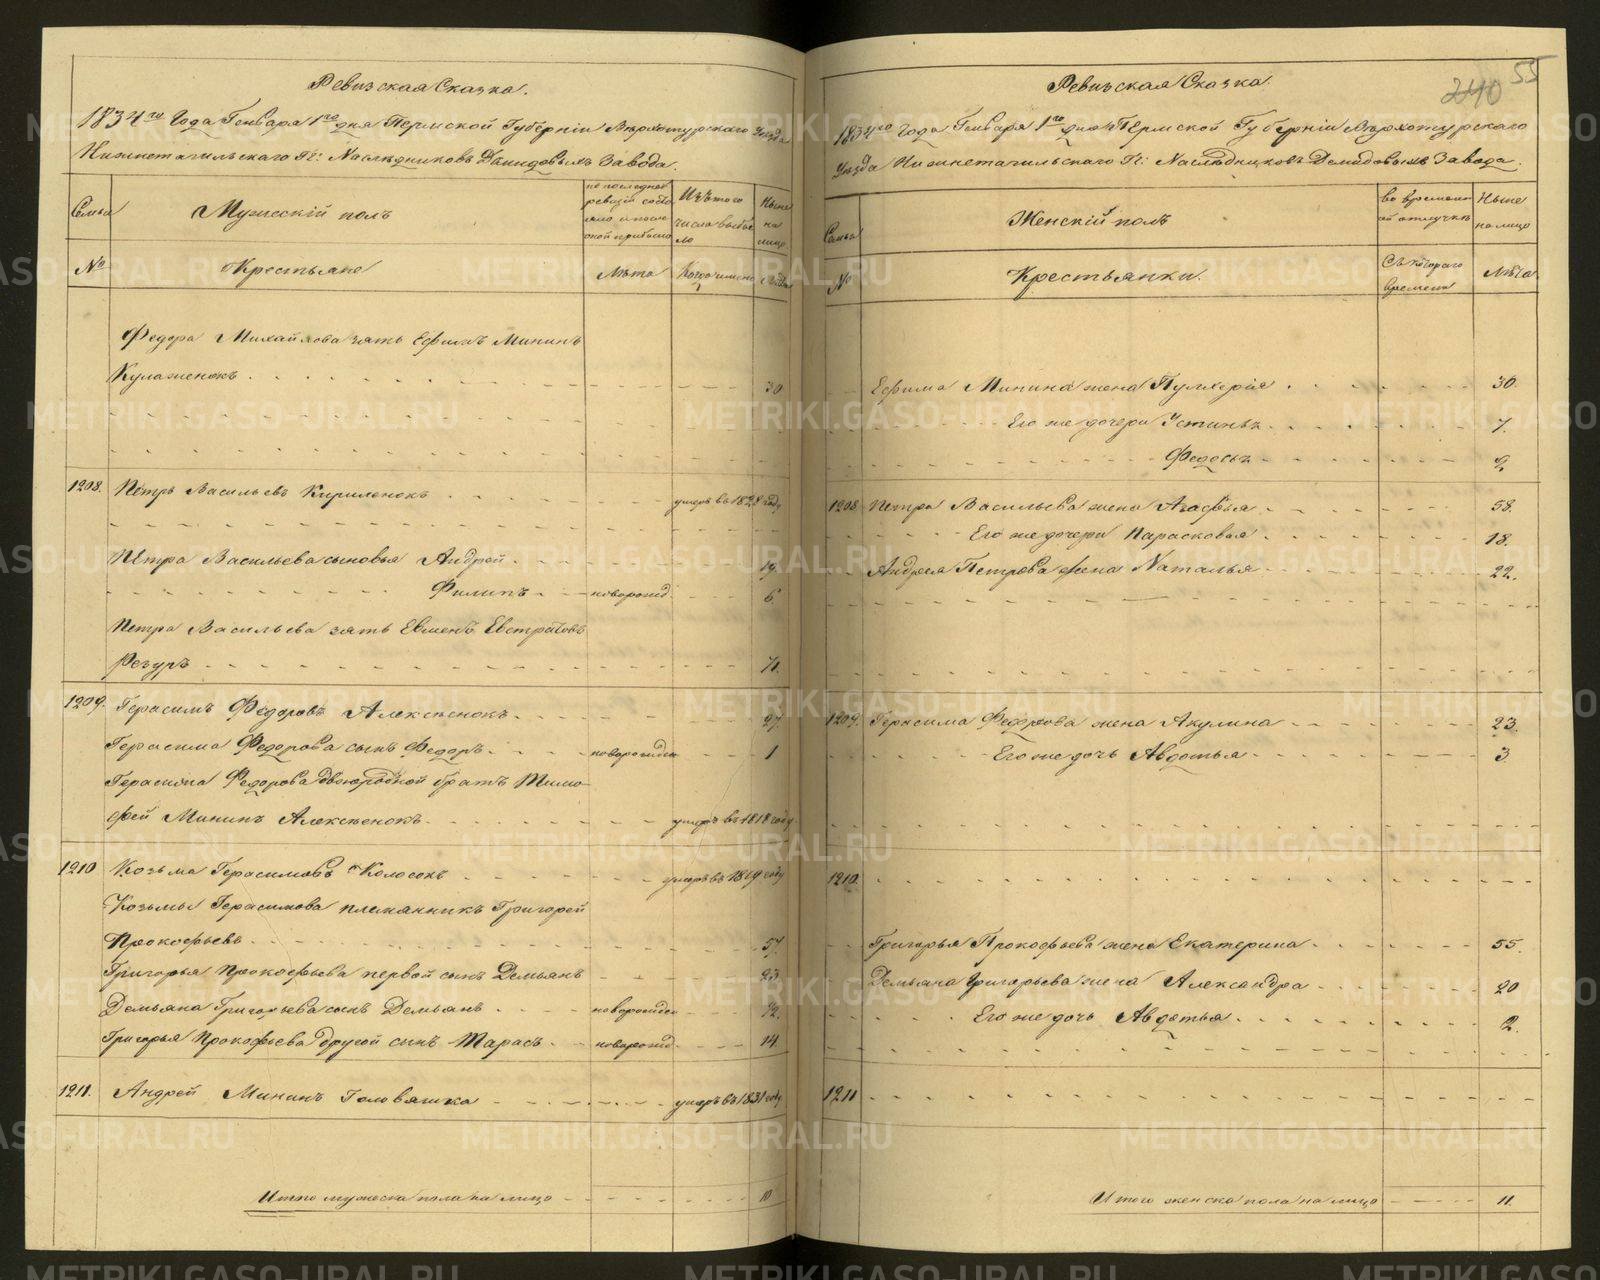 Ревизская Сказка.
1834го Года Генваря 1го дня Пермской Губерніи Верхотурскаго Уезда
Нижнетагильскаго Гг: Наследниковъ Демидовыхъ Завода.
Семьи
Мужескій полъ
по последней ревизіи состояло и после оной прибыло
Изъ того числа выбыло
Ныне на лицо.
№
Крестьяне
Лета
Когда именно
Лета
Федора Михайлова зять Ефимъ Мининъ
Кулаженокъ 30
1208. Петръ Васильевъ Кириленокъ умеръ въ 1828 году
Петра Васильева сыновья Андрей 19.
Филипъ новорожд. 6.
Петра Васильева зять Евменъ Евстратовъ
1209. Герасимъ Федоровъ Алексеенокъ 27.
Герасима Федорова сынъ Федоръ новорожден 1
Герасима Федорова двоюродной братъ Тимо-
фей Мининъ Алексеенокъ умеръ въ 1818 году
1210 Козьма Герасимовъ Колосокъ умеръ въ 1819 году
Козьмы Герасимова племянникъ Григорей
Прокофьевъ 57.
Григорья Прокофьева первой сынъ Демьянъ 23
Демьяна Григорьева сынъ Демьянъ новорожден ½.
Григорья Прокофьева другой сынъ Тарасъ новорожд. 14
1211. Андрей Мининъ Головяшка умеръ въ 1831 году
Итого мужеска пола на лицо 10
240 55
Ревизская Сказка.
1834го Года Генваря 1го дня Пермской Губерніи Верхотурскаго
Уезда Нижнетагильскаго Гг: Наследниковъ Демидовыхъ Завода.
Семьи
Женскій полъ
во временной отлучке
Ныне на лицо
№
Крестьянки.
Съ котораго времени
Лета
Ефима Минина жена Пулхерія 30.
Его же дочери Устинья 7.
Федосья
1208 Петра Васильева жена Агафья 58.
Его же дочери Парасковья 18.
Андрея Петрова жена Наталья 22.
1209. Герасима Федорова жена Акулина 23.
Его же дочь Авдотья 3.
1210.
Григорья Прокофьева жена Екатерина 55.
Демьяна Григорьева жена Александра 20
Его же дочь Авдотья 2.
1211
Итого женска пола на лицо 11.
METRIKI.GASO-URAL.RU